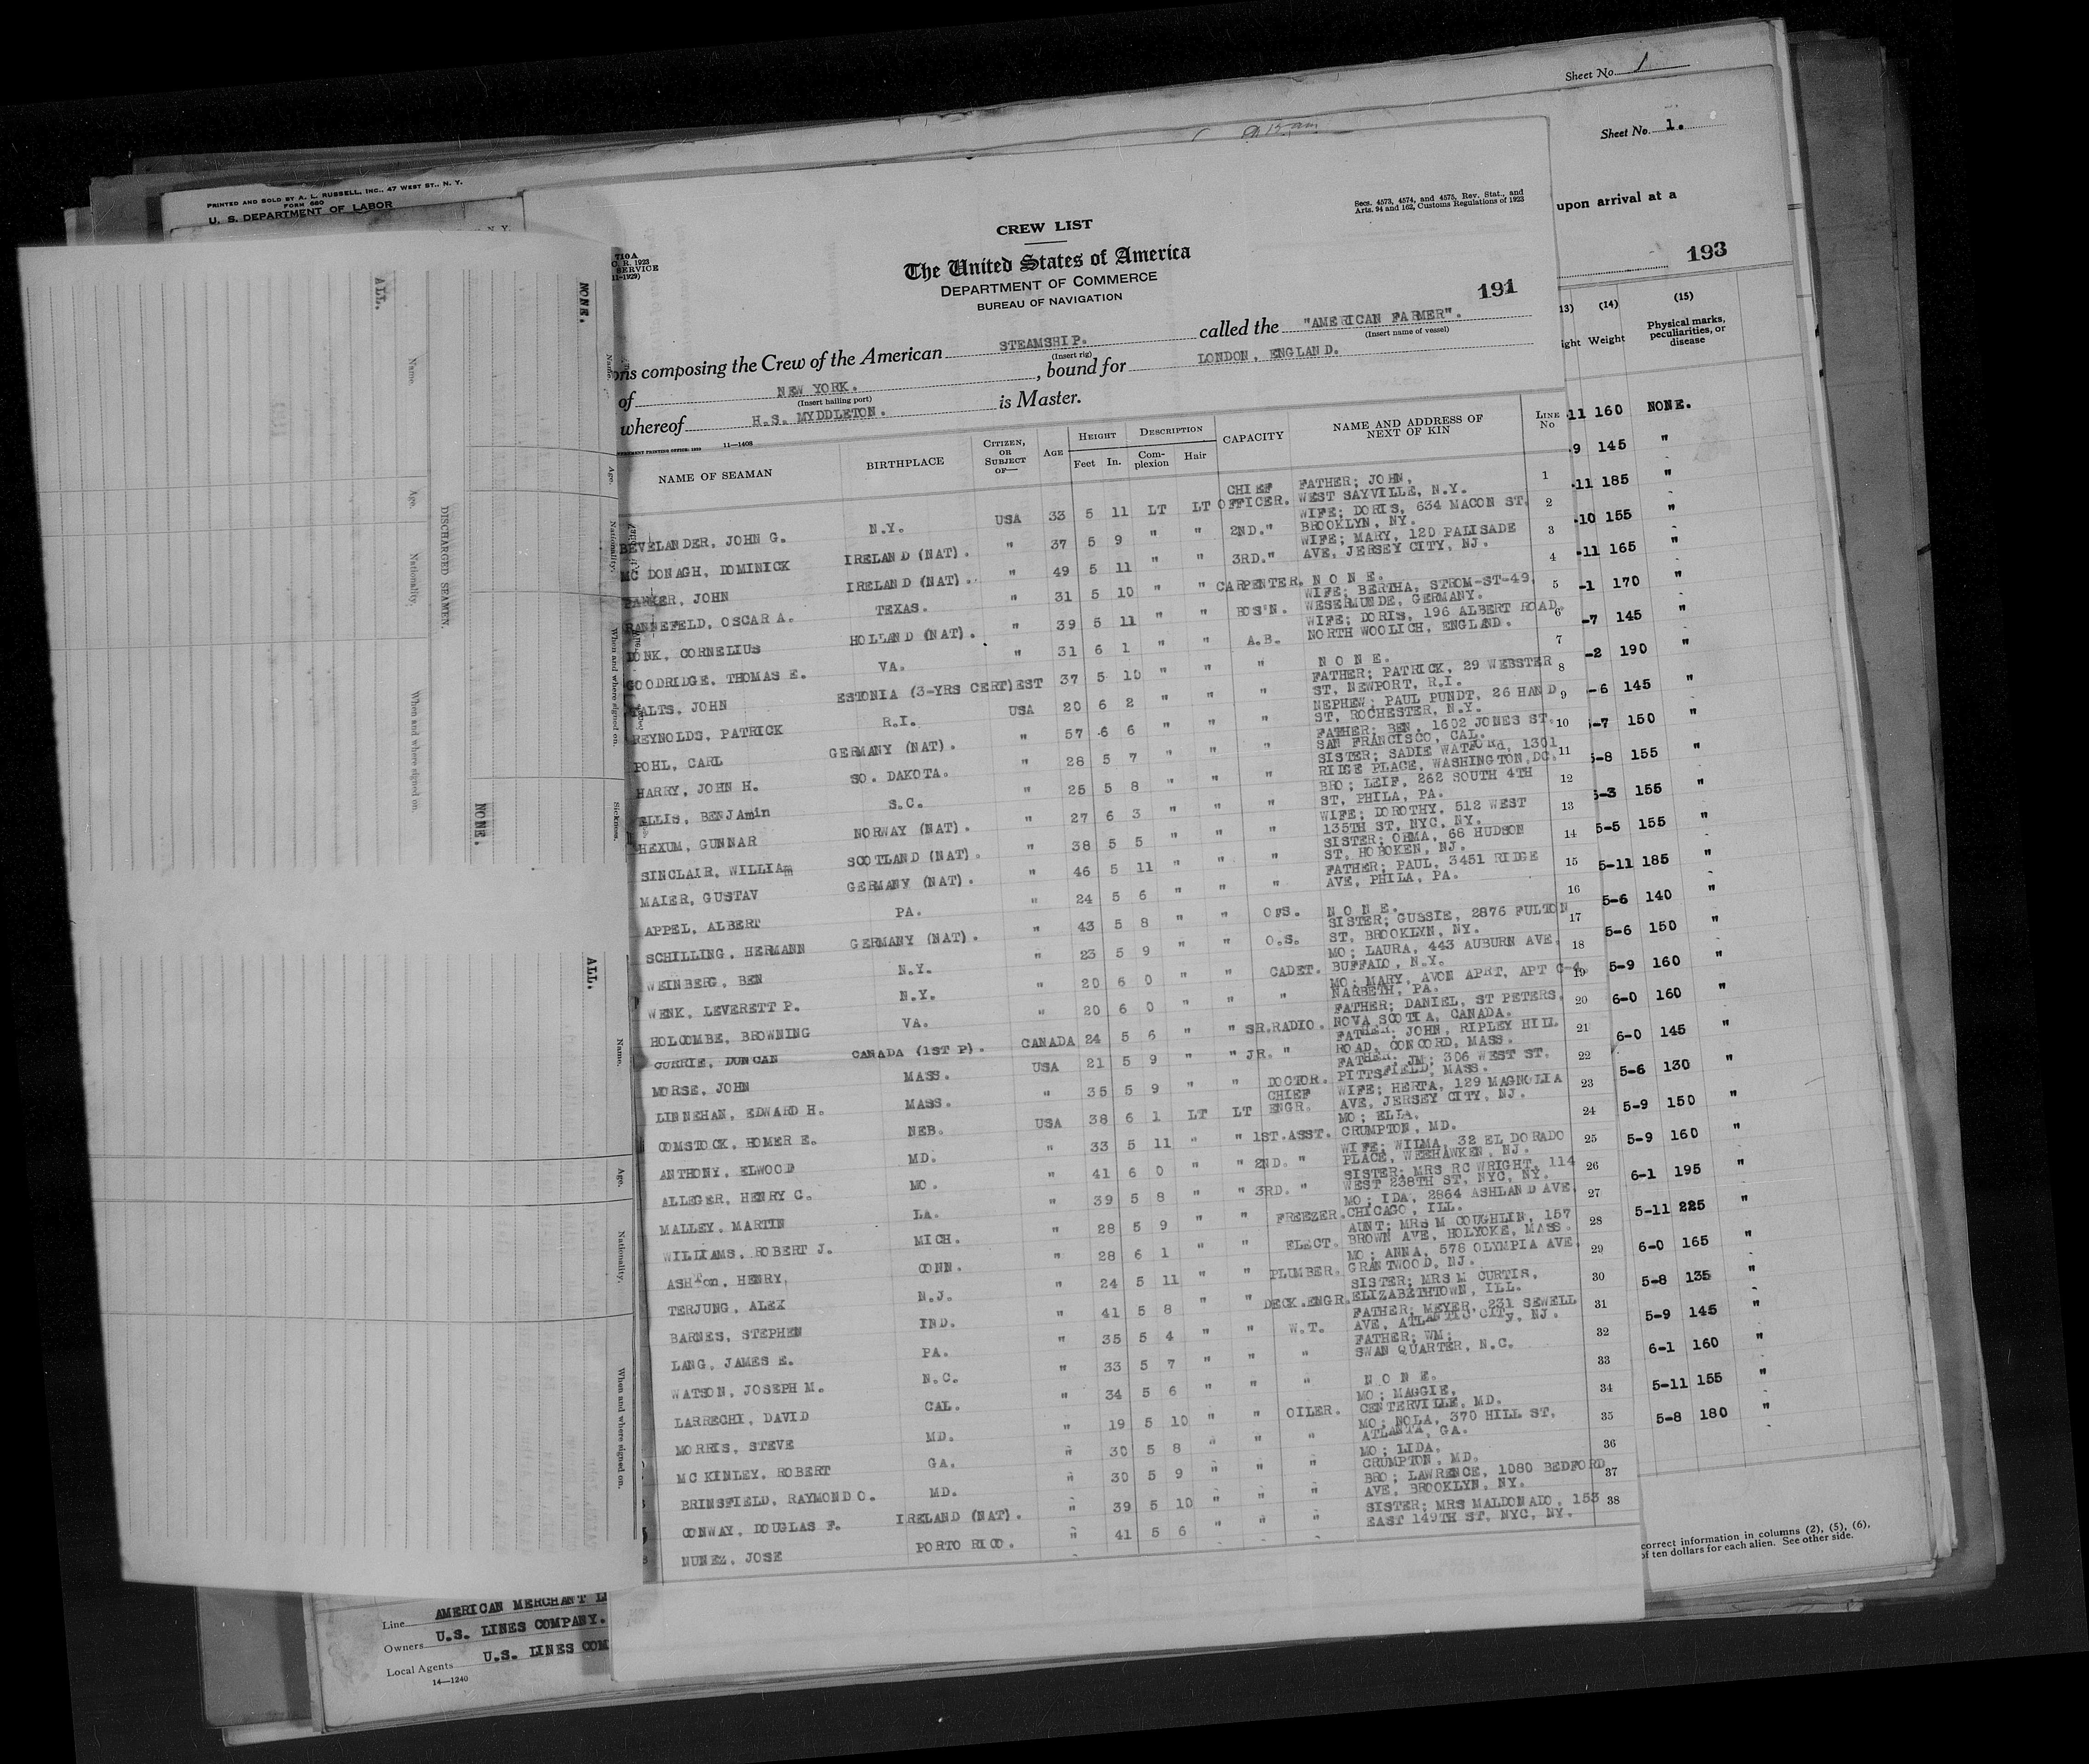 Sheet No. 1
Sheet No. 1.
upon arrival at a
193
PRINTED AND SOLD BY A. L. RUSSELL, INC., 47 WEST ST., N. Y.
FORM 680
U. S. DEPARTMENT OF LABOR
Secs. 4573, 4574, and 4575, Rev. Stat., and
Arts. 94 and 162, Customs Regulations of 1923
710A
C. R. 1923
SERVICE
11-1929)
CREW LIST
The United States of America
DEPARTMENT OF COMMERCE
BUREAU OF NAVIGATION
191
ons composing the Crew of the American STEAMSHIP. called the "AMERICAN FARMER".
(Insert rig) (Insert name of vessel)
of NEW YORK. , bound for LONDON, ENGLAND.
(Insert hailing port)
whereof H.S. MYDDLETON. is Master.
11—1408
NAME OF SEAMAN BIRTHPLACE CITIZEN, OR SUBJECT OF— AGE HEIGHT Feet In. DESCRIPTION Complexion Hair CAPACITY NAME AND ADDRESS OF NEXT OF KIN LINE No
BEVELANDER, JOHN G. N.Y. USA 33 5 11 LT LT CHIEF OFFICER. FATHER; JOHN, WEST SAYVILLE, N.Y. 1
MC DONAGH, DOMINICK IRELAND (NAT). " 37 5 9 " " 2ND." WIFE; DORIS, 634 MACON ST, BROOKLYN, NY. 2
JOHN IRELAND (NAT). " 49 5 11 " " 3RD." WIFE; MARY, 120 PALISADE AVE, JERSEY CITY, NJ. 3
RANNEFELD, OSCAR A. TEXAS. " 31 5 10 " " CARPENTER. N O N E. 4
CORNELIUS HOLLAND (NAT). " 39 5 11 " " BOS'N. WIFE; BERTHA, STROM-ST-49, WESERMUNDE, GERMANY. 5
GOODRIDGE, THOMAS E. VA. " 31 6 1 " " A.B. WIFE; DORIS, 196 ALBERT ROAD, NORTH WOOLICH, ENGLAND. 6
JOHN ESTONIA (3-YRS CERT) EST 37 5 10 " " " N O N E. 7
REYNOLDS, PATRICK R.I. USA 20 6 2 " " " FATHER; PATRICK, 29 WEBSTER ST, NEWPORT, R.I. 8
POHL, CARL GERMANY (NAT). " 57 6 6 " " " NEPHEW; PAUL PUNDT, 26 HAND ST, ROCHESTER, N.Y. 9
HARRY, JOHN H. SO. DAKOTA. " 28 5 7 " " " FATHER; BEN, 1602 JONES ST. SAN FRANCISCO, CAL. 10
ELLIS, BENJAmin S.C. " 25 5 8 " " " SISTER; SADIE WATFORd, 1301 RIDGE PLACE, WASHINGTON, DC. 11
HEXUM, GUNNAR NORWAY (NAT). " 27 6 3 " " " BRO; LEIF, 262 SOUTH 4TH ST, PHILA, PA. 12
SINCLAIR, WILLIAm SCOTLAND (NAT). " 38 5 5 " " " WIFE; DOROTHY, 512 WEST 135TH ST, NYC, NY. 13
MAIER, GUSTAV GERMANY (NAT). " 46 5 11 " " " SISTER; OHMA, 66 HUDSON ST, HOBOKEN, NJ. 14
APPEL, ALBERT PA. " 24 5 6 " " " FATHER; PAUL, 3451 RIDGE AVE, PHILA, PA. 15
SCHILLING, HERMANN GERMANY (NAT). " 43 5 8 " " N O N E. 16
WEINBERG, BEN N.Y. " 23 5 9 " " O.S. SISTER; GUSSIE, 2876 FULTON ST, BROOKLYN, NY. 17
WENK, LEVERETT P. N.Y. " 20 6 0 " " CADET. MO; LAURA, 443 AUBURN AVE, BUFFALO, N.Y. 18
HOLCOMBE, BROWNING VA. " 20 6 0 " " " MO; MARY, AVON APRT, APT C-4, NARBETH, PA. 19
CURRIE, DUNCAN CANADA (1ST P). CANADA 24 5 6 " " SR.RADIO. FATHER; DANIEL, ST PETERS, NOVA SCOTIA, CANADA. 20
MORSE, JOHN MASS. USA 21 5 9 " " JR. " FATHER; JOHN, RIPLEY HILL ROAD, CONCORD, MASS. 21
LINNEHAN, EDWARD H. MASS. " 35 5 9 " " DOCTOR. FATHER; JM; 306 WEST ST, PITTSFIELD, MASS. 22
COMSTOCK, HOMER E. NEB. USA 38 6 1 LT LT CHIEF ENGR. WIFE; HERTA, 129 MAGNOLIA AVE, JERSEY CITY, NJ. 23
ANTHONY, ELWOOD MD. " 33 5 11 " " 1ST.ASST. MO; ELLA, CRUMPTON, MD. 24
ALLEGER, HENRY C. MO. " 41 6 0 " " 2ND. " WIFE; WILMA, 32 EL DORADO PLACE, WEEHAWKEN, NJ. 25
MALLEY, MARTIN LA. " 39 5 8 " " 3RD. " SISTER; MRS RC WRIGHT, 114 WEST 238TH ST, NYC, NY. 26
WILLIAMS, ROBERT J. MICH. " 28 5 9 " " FREEZER. MO; IDA, 2864 ASHLAND AVE, CHICAGO, ILL. 27
ASHTon, HENRY, CONN. " 28 6 1 " " ELECT. AUNT; MRS M COUGHLIN, 157 BROWN AVE, HOLYOKE, MASS. 28
TERJUNG, ALEX N.J. " 24 5 11 " " PLUMBER. MO; ANNA, 578 OLYMPIA AVE, GRANTWOOD, NJ. 29
BARNES, STEPHEN IND. " 41 5 8 " " DECK.ENGR. SISTER; MRS M CURTIS, ELIZABETHTOWN, ILL. 30
LANG, JAMES E. PA. " 35 5 4 " " W.T. FATHER; MEYER, 231 SEWELL AVE, ATLANTIC CITy, NJ. 31
WATSON, JOSEPH M. N.C. " 33 5 7 " " " FATHER; WM; SWAN QUARTER, N.C. 32
LARRECHI, DAVID CAL. " 34 5 6 " " " N O N E. 33
MORRIS, STEVE MD. " 19 5 10 " " OILER. MO; MAGGIE, CENTERVILLE, MD. 34
MC KINLEY, ROBERT GA. " 30 5 8 " " " MO; NOLA, 370 HILL ST, ATLANTA, GA. 35
BRINSFIELD, RAYMOND O. MD. " 30 5 9 " " " MO; LIDA, CRUMPTON, MD. 36
CONWAY, DOUGLAS F. IRELAND (NAT). " 39 5 10 " " " BRO; LAWRENCE, 1080 BEDFORD AVE, BROOKLYN, NY. 37
NUNEz, JOSE PORTO RICO. " 41 5 6 " " " SISTER; MRS MALDONADO, 153 EAST 149TH ST, NYC, NY. 38
13) (14) (15)
ight Weight Physical marks, peculiarities, or disease
11 160 NONE.
9 145 "
-11 185 "
-10 155 "
-11 165 "
-1 170 "
-7 145 "
-2 190 "
-6 145 "
-7 150 "
5-8 155 "
5-3 155 "
5-5 155 "
5-11 185 "
5-6 140 "
5-6 150 "
5-9 160 "
6-0 160 "
6-0 145 "
5-6 130 "
5-9 150 "
5-9 160 "
6-1 195 "
5-11 225 "
6-0 165 "
5-8 135 "
5-9 145 "
6-1 160 "
5-11 155 "
5-8 180 "
correct information in columns (2), (5), (6),
of ten dollars for each alien. See other side.
NONE.
ALL.
Name.
Age.
Nationality.
When and where signed on.
Sickness.
DISCHARGED SEAMEN.
Name.
Age.
Nationality.
When and where signed on.
NONE.
ALL.
Name.
Age.
Nationality.
When and where signed on.
Line AMERICAN MERCHANT
Owners U.S. LINES COMPANY.
Local Agents U.S. LINES COM
14—1240